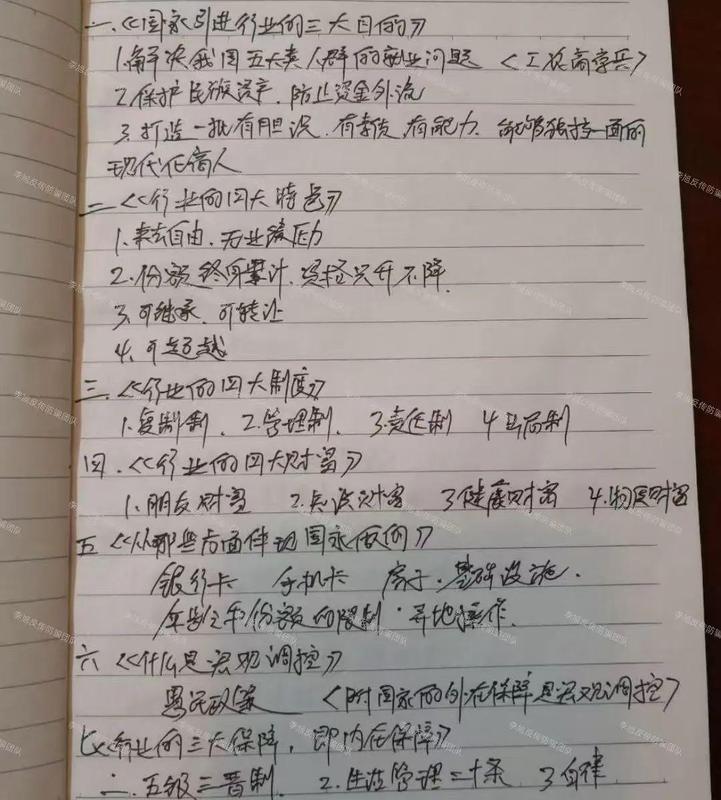 一.《国家引进行业的三大目的》
1.解决我国五大类人群的就业问题 <工农商学兵>
2.保护民族资产,防止资金外流
3.打造一批有胆识.有素质.有能力.能够独挡一面的
现代化商人
二《行业的四大特色》
1.来去自由.无业绩压力
2.份额终身累计.只升不降.
3.可继承.可转让
4.可超越
三.《行业的四大制度》
1.复制制. 2.管理制. 3.责任制 4出局制
四.《行业的四大财富》
1.朋友财富 2.知识财富 3健康财富 4.物质财富
五《从那些方面体现国家做的》
银行卡 手机卡 房子.基础设施.
年龄和份额的限制.异地操作.
六《什么是宏观调控》
愚民政策 <附国家的外在保障是宏观调控>
七《行业的三大保障,即内在保障》
一.五级三晋制. 2.生活管理二十条 3自律
李旭反传防骗团队